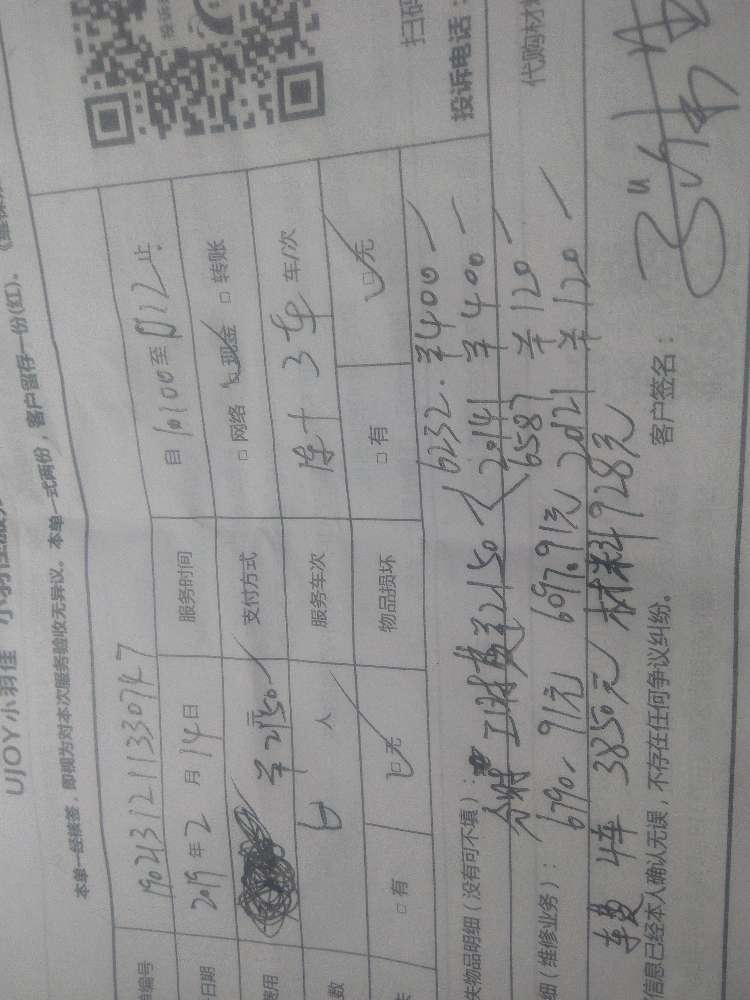 UJOY小羽佳
本单一经核签，即视为对本次服务验收无异议。本单一式两份，客户留存一份(红)。
编号 190213121133074 7
日期 2019年2月14日 服务时间 自 10:00至
止
费用 ¥2150元 支付方式 □网络 □现金 □转账
数 6人 服务车次 3车 车/次
□有 □无 物品损坏 □有 □无
投诉电话：
失物品明细（没有可不填）： 工时费是2150 6232. ¥400
20141 ¥400
细（维修业务）： 6587 ¥120
代购材
6790.91元 6097.91元 ¥120
车费 4车 3850元 材料928元
信息已经本人确认无误，不存在任何争议纠纷。 客户签名：